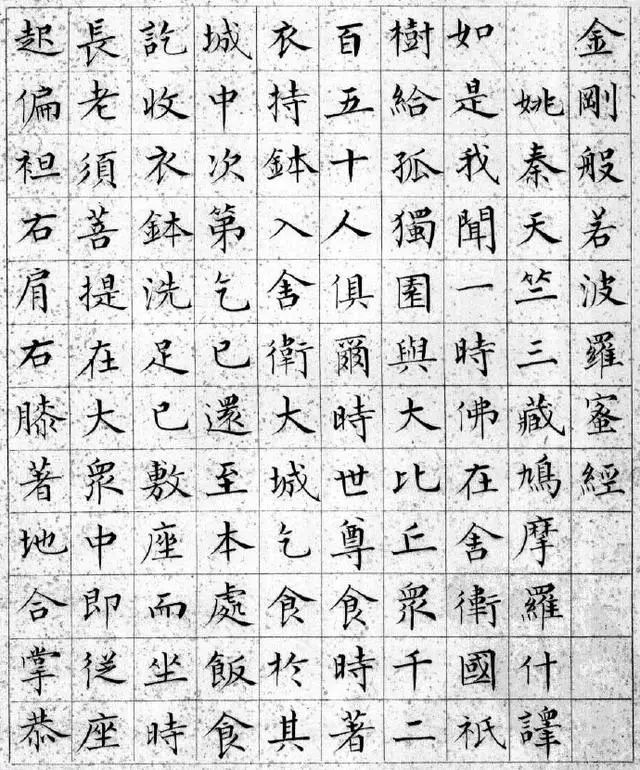 金剛般若波羅蜜經
姚秦天竺三藏鳩摩羅什譯
如是我聞一時佛在舍衛國祇
樹給孤獨園與大比丘眾千二
百五十人俱爾時世尊食時著
衣持鉢入舍衛大城乞食於其
城中次第乞已還至本處飯食
訖收衣鉢洗足已敷座而坐時
長老須菩提在大眾中即從座
起偏袒右肩右膝著地合掌恭